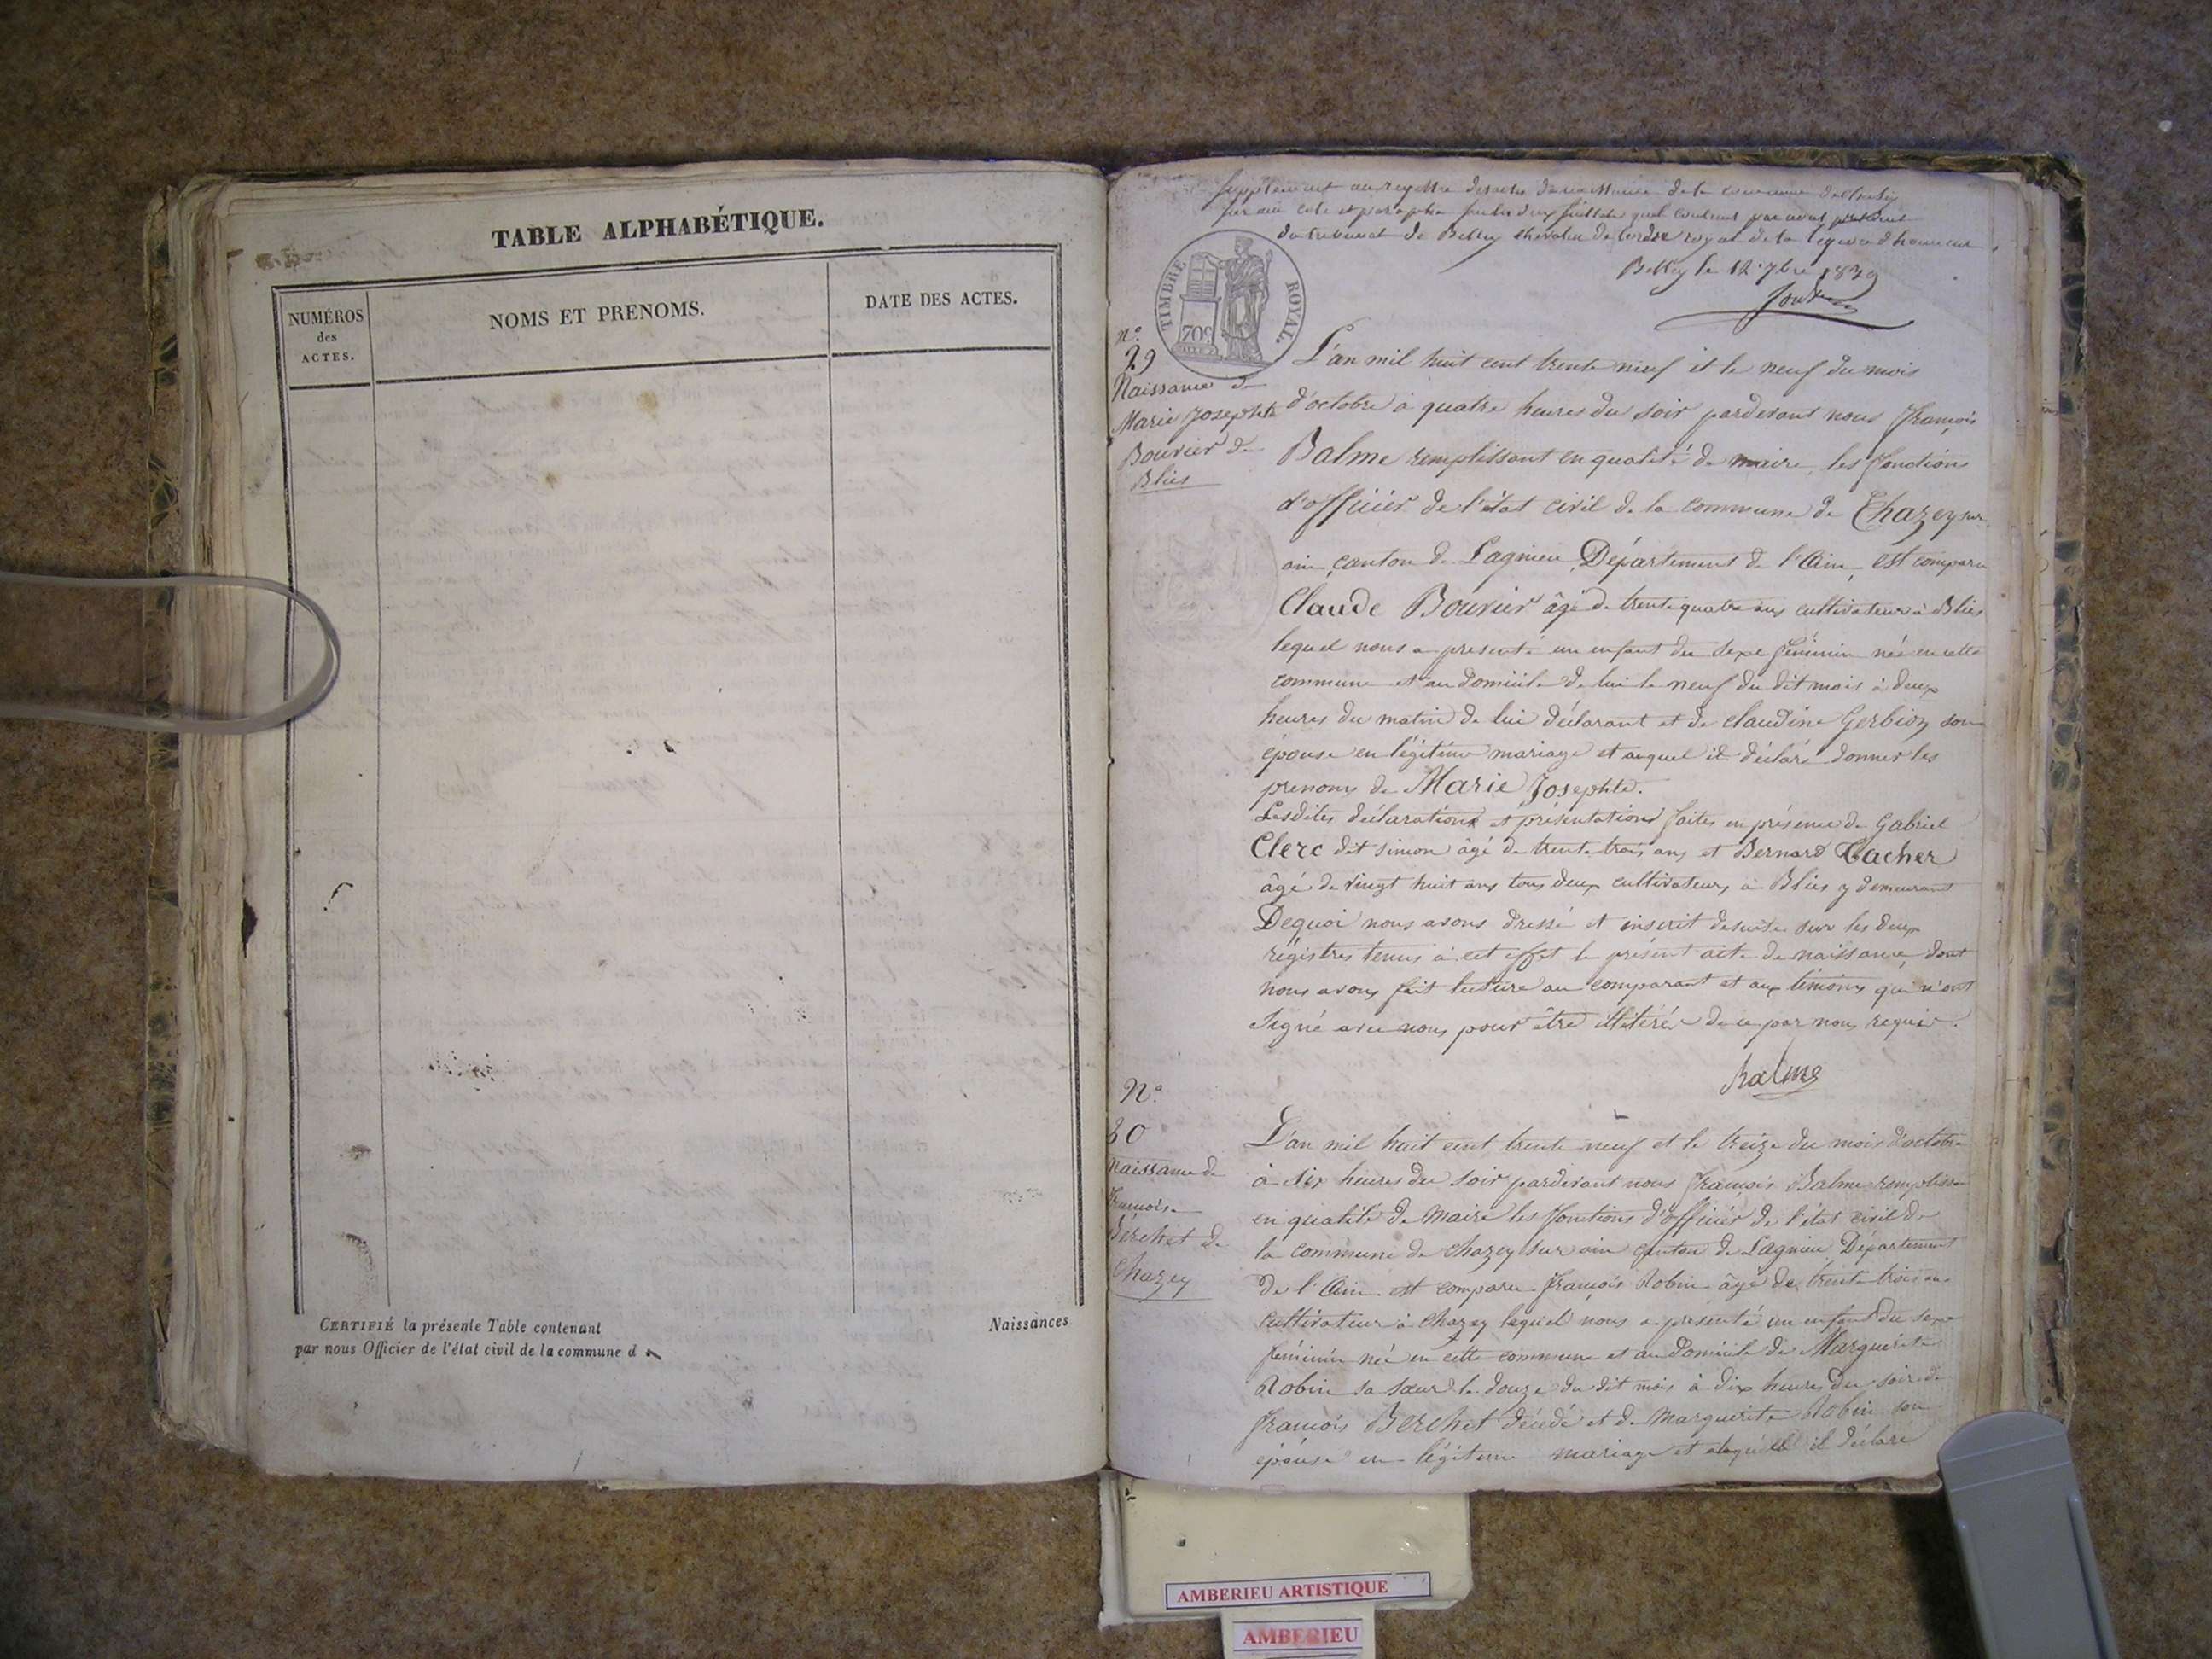 TABLE ALPHABÉTIQUE.
NUMÉROS
des
ACTES.
NOMS ET PRENOMS.
DATE DES ACTES.
CERTIFIÉ la présente Table contenant
par nous Officier de l'état civil de la commune d
Naissances
Supplément au registre des actes de naissance de la commune de Chazey
sur ain coté et paraphé par
du tribunal de Belley chevalier de l'ordre royal de la légion d'honneur
Belley le 12 7bre 1839
TIMBRE ROYAL.
70c
N°
29
Naissance de
Marie Josephte
Bouvier de
Blies
L'an mil huit cent trente neuf et le neuf du mois
d'octobre à quatre heures du soir pardevant nous François
Balme remplissant en qualité de maire les fonctions
d'officier de l'état civil de la commune de Chazey sur
ain canton de Lagnieu Département de l'Ain est comparu
Claude Bouvier âgé de trente quatre ans cultivateur à Blies
lequel nous a présenté un enfant du sexe féminin née en cette
commune et au domicile de lui le neuf du dit mois à deux
heures du matin de lui déclarant et de claudine Gerbion son
épouse en légitime mariage et auquel il déclaré donner les
prenoms de Marie Josephte.
Lesdites déclarations et présentations faites en présence de Gabriel
Clerc dit simon âgé de trente trois ans et Bernard Cacher
âgé de vingt huit ans tous deux cultivateurs à Blies y demeurant
Dequoi nous avons dressé et inscrit desuite sur les deux
régistres tenus à cet effet le présent acte de naissance, dont
nous avons fait lecture au comparant et aux témoins qui n'ont
signé avec nous pour être illitéré de ce par nous requis.
Balme
N°
30
Naissance de
Françoise
Berchet de
Chazey
L'an mil huit cent trente neuf et le treize du mois d'octobre
à six heures du soir pardevant nous François Balme rempliss
en qualité de Maire les fonctions d'officier de l'état civil de
la commune de Chazey sur ain canton de Lagnieu Département
de l'Ain est comparu François Robin âgé de trente trois ans
cultivateur à Chazey lequel nous a présenté un enfant du sexe
féminin née en cette commune et au domicile de Marguerite
Robin sa sœur le douze du dit mois à dix heures du soir de
François Berchet décédé et de Marguerite Robin son
épouse en légitime mariage et auquel il déclare
AMBERIEU ARTISTIQUE
AMBERIEU